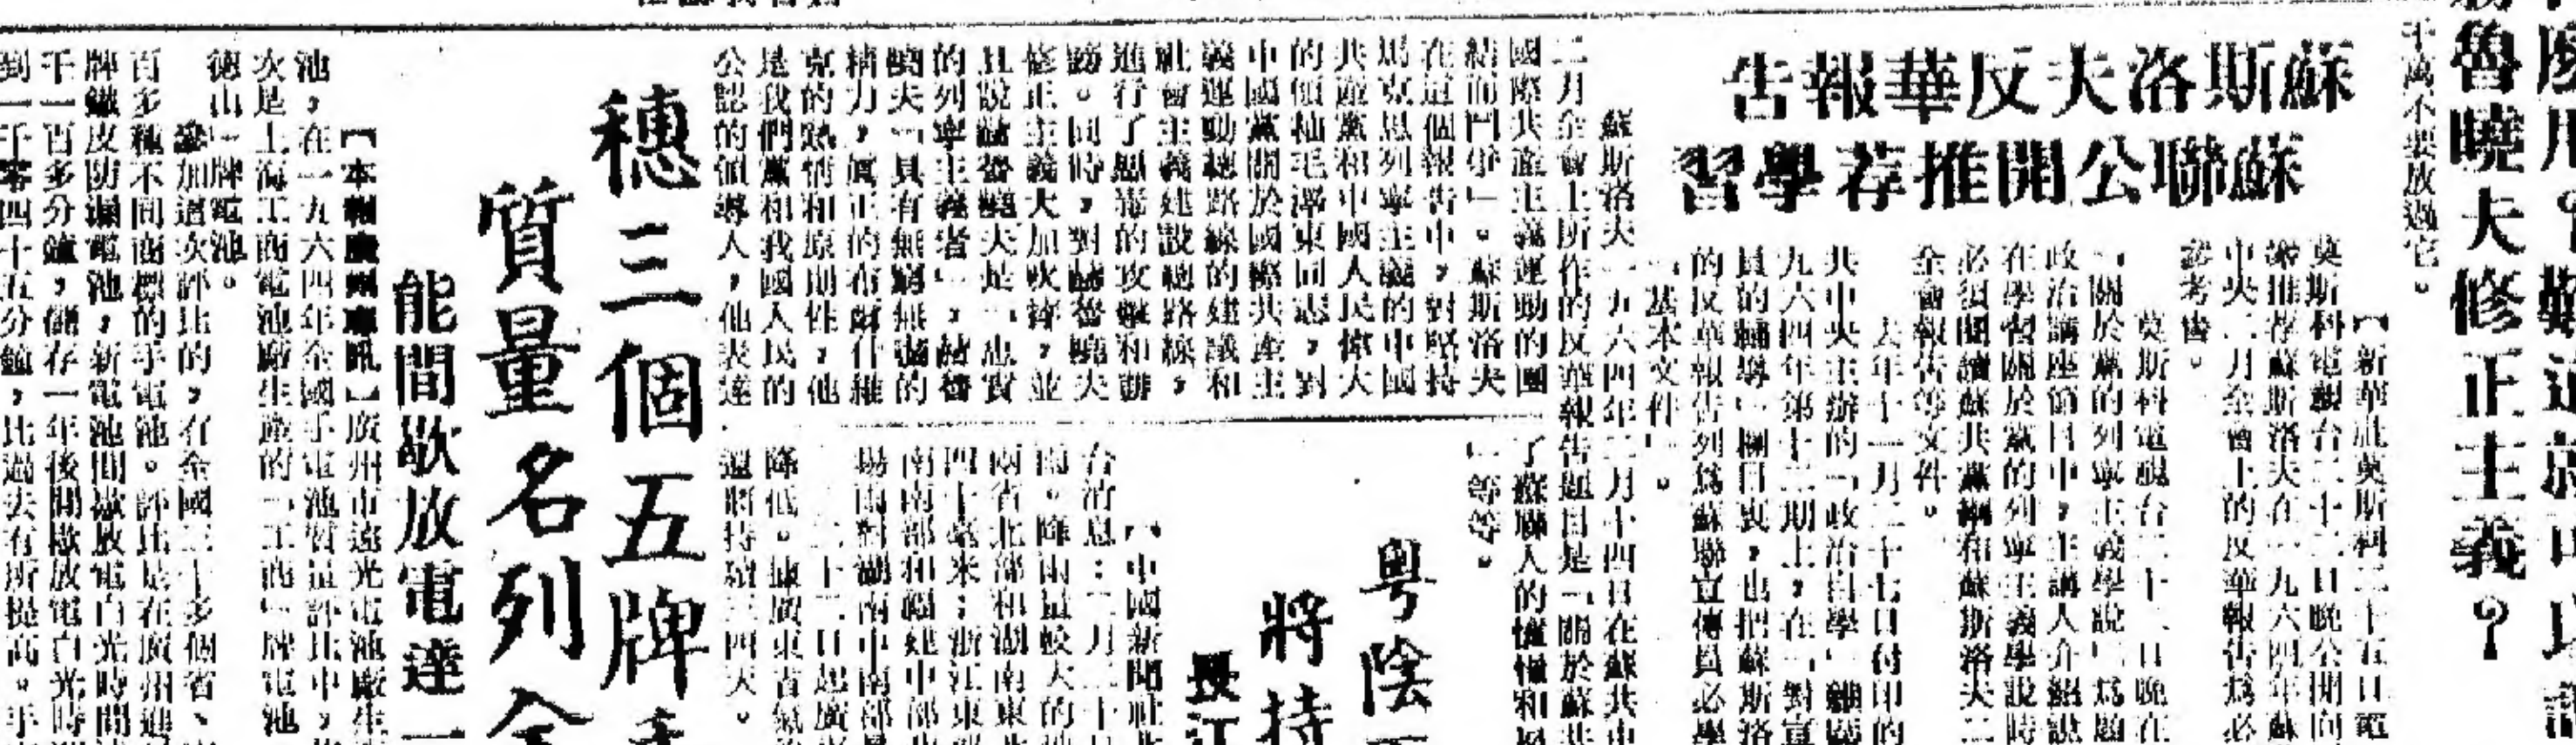 魯曉夫修正主義？
千萬不要放過它。
蘇斯洛夫反華報告
蘇聯公開推荐學習
【新華社莫斯科二十五日電
莫斯科電視台二十二日晚公開向
推荐蘇斯洛夫在一九六四年蘇
中央二月全會上的反華報告爲必
參考書。
莫斯科電視台二十二日晚在
「關於黨的列寧主義學說」爲題
政治講座節目中，主講人介紹說
在學習關於黨的列寧主義學說時
必須閱讀蘇共黨綱和蘇斯洛夫二
全會報告等文件。
去年十一月二十七日付印的
共中央主辦的「政治自學」雜
九六四年第十二期上，在「對宣
員的輔導」欄目裏，也把蘇斯洛
的反華報告列爲蘇聯宣傳員必學
「基本文件」。
蘇斯洛夫一九六四年二月十四日在蘇共中
二月全會上所作的反華報告題目是「關於蘇共
國際共產主義運動的團
結而鬥爭」。蘇斯洛夫
在這個報告中，對堅持
馬克思列寧主義的中國
共產黨和中國人民偉大
的領袖毛澤東同志，對
中國黨關於國際共產主
義運動總路線的建議和
社會主義建設總路線，
進行了惡毒的攻擊和誹
謗。同時，對赫魯曉夫
修正主義大加吹捧，並
且說赫魯曉夫是「忠實
的列寧主義者」，赫魯
曉夫「具有無窮無盡的
精力，真正的布爾什維
克的熱情和原則性，他
是我們黨和我國人民的
公認的領導人，他表達
了蘇聯人的憧憬和
」等等。
粵陰
將持
長江
【中國新聞社
台消息：二月二十
雨。降雨量較大的
兩省北部和湖南東
四十毫米；浙江東
南南部和福建中部
場雨對湖南中南部
二十二日起廣
降低。據廣東省氣
還將持續三四天。
穗三個五牌
質量名列全
能間歇放電達一
【本報廣州專訊】廣州市遠光電池廠生
池，在一九六四年全國手電池質量評比中，
次是上海工商電池廠生產的「工商」牌電池
德山」牌電池。
參加這次評比的，有全國三十多個省、
百多種不同商標的手電池。評比是在廣州通
牌鐵皮防漏電池，新電池間歇放電白光時間
千一百多分鐘，儲存一年後間歇放電白光時
到一千零四十五分鐘，比過去有所提高。手